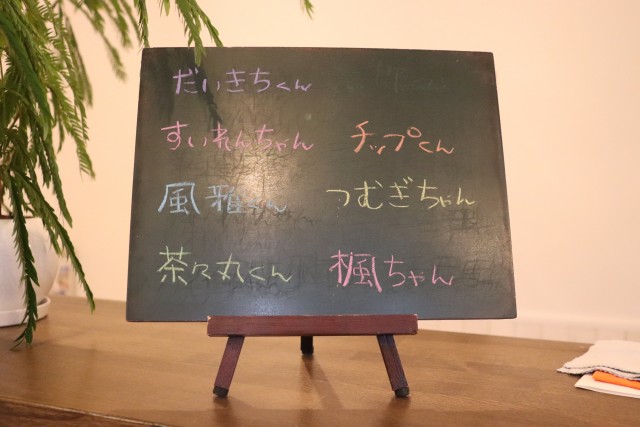 だいきちくん
すいれんちゃん チップくん
風雅くん つむぎちゃん
茶々丸くん 楓ちゃん